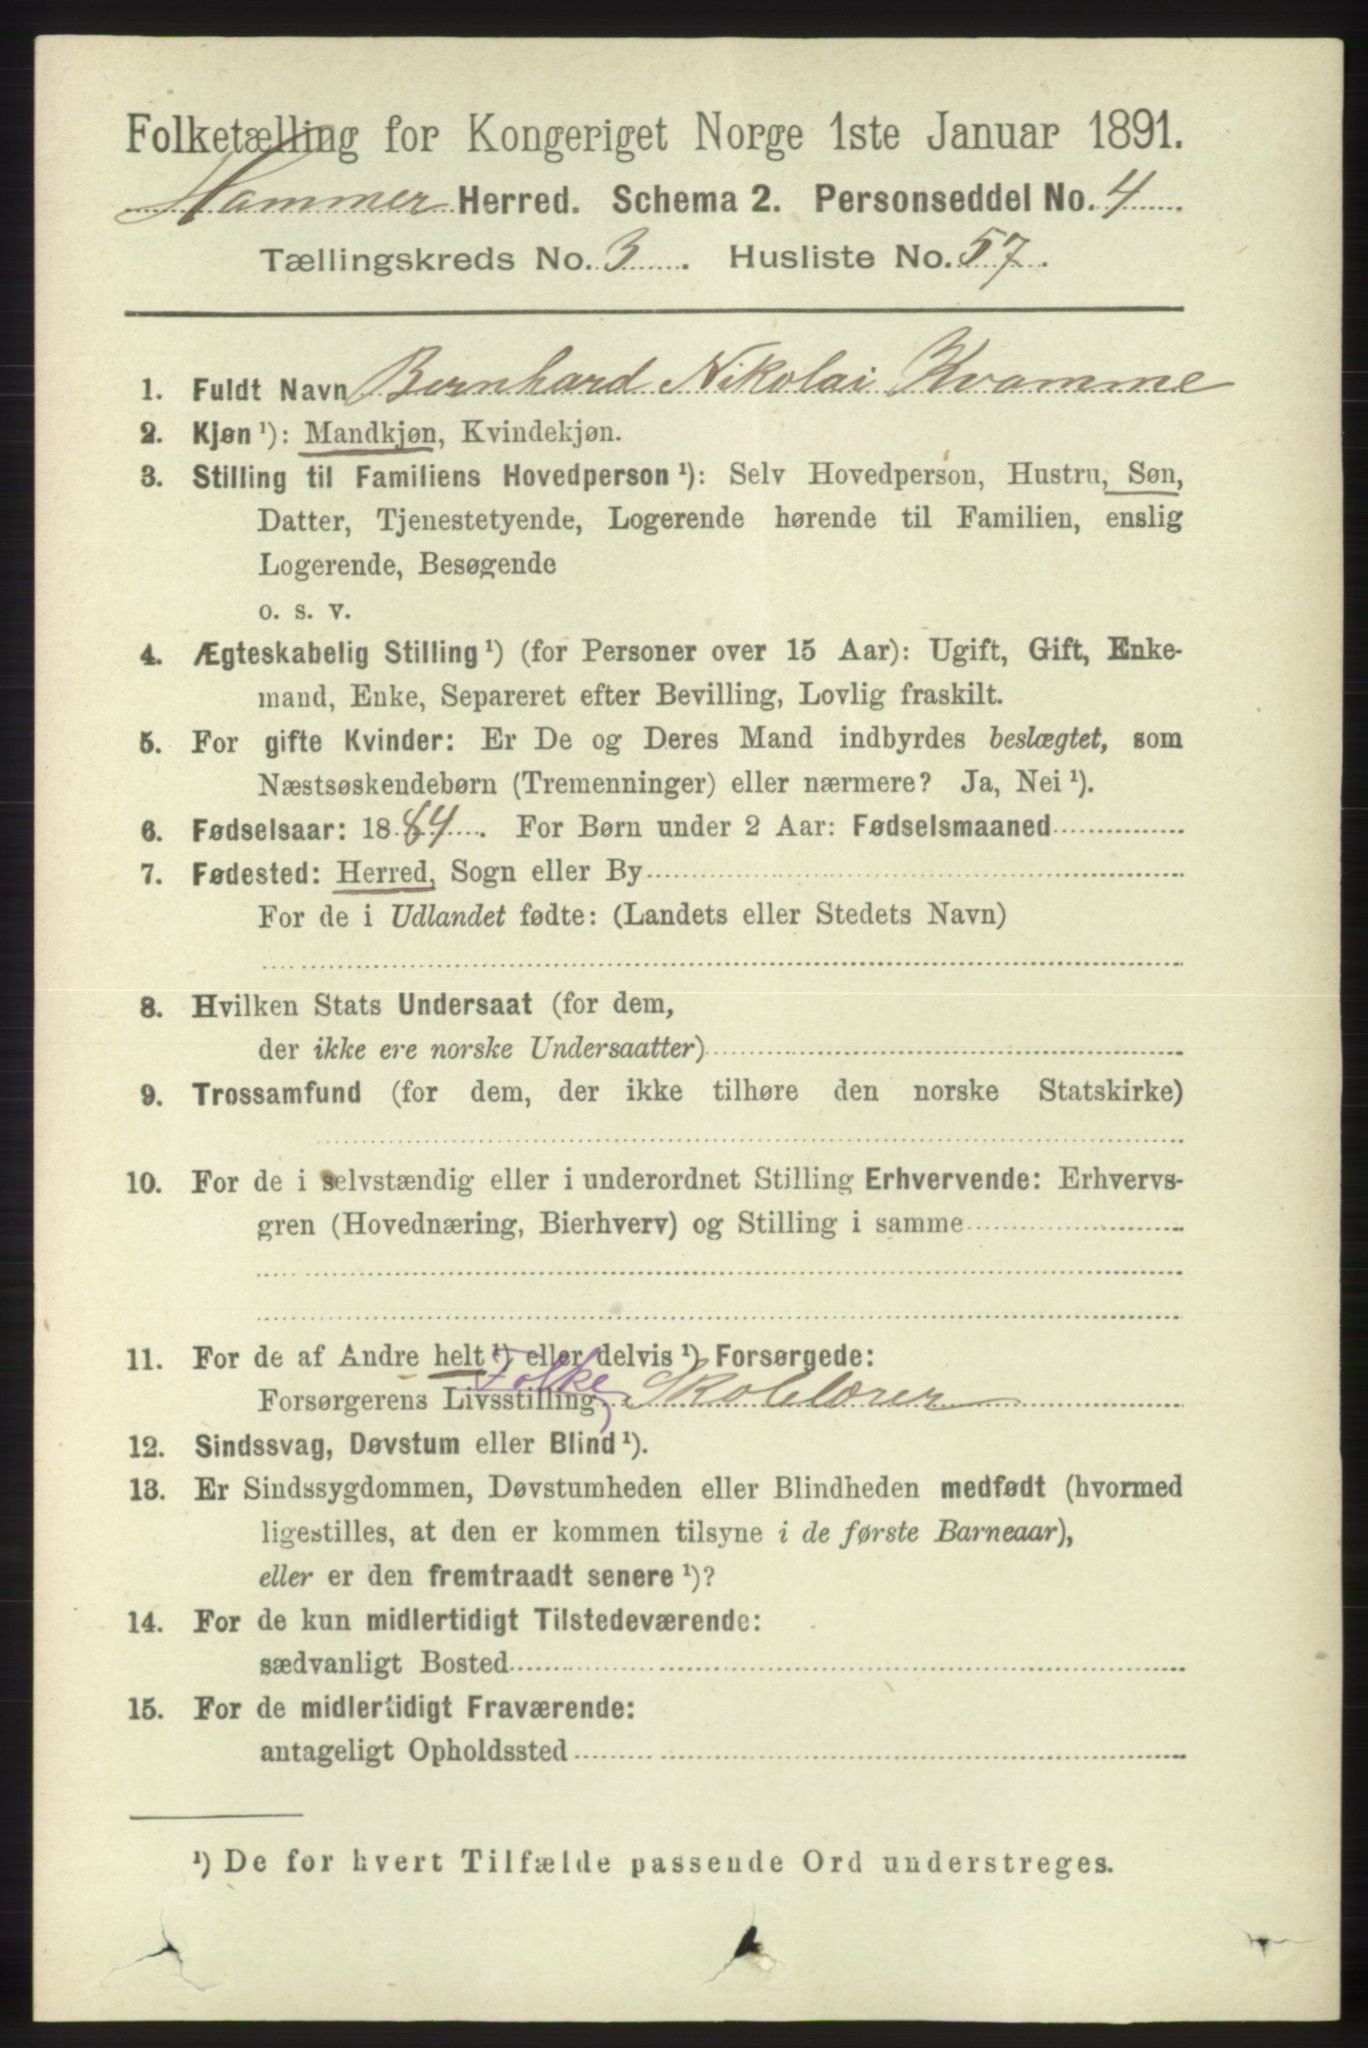 Folketælling for Kongeriget Norge 1ste Januar 1891.
Hammer Herred. Schema 2. Personseddel No. 4
Tællingskreds No. 3. Husliste No. 57.
1. Fuldt Navn Bernhard Nikolai Kvamme
2. Kjøn ¹): Mandkjøn, Kvindekjøn.
3. Stilling til Familiens Hovedperson ¹): Selv Hovedperson, Hustru, Søn,
Datter, Tjenestetyende, Logerende hørende til Familien, enslig
Logerende, Besøgende
o. s. v.
4. Ægteskabelig Stilling ¹) (for Personer over 15 Aar): Ugift, Gift, Enke-
mand, Enke, Separeret efter Bevilling, Lovlig fraskilt.
5. For gifte Kvinder: Er De og Deres Mand indbyrdes beslægtet, som
Næstsøskendebørn (Tremenninger) eller nærmere? Ja, Nei ¹).
6. Fødselsaar: 1884. For Børn under 2 Aar: Fødselsmaaned
7. Fødested: Herred, Sogn eller By
For de i Udlandet fødte: (Landets eller Stedets Navn)
8. Hvilken Stats Undersaat (for dem,
der ikke ere norske Undersaatter)
9. Trossamfund (for dem, der ikke tilhøre den norske Statskirke)
10. For de i selvstændig eller i underordnet Stilling Erhvervende: Erhvervs-
gren (Hovednæring, Bierhverv) og Stilling i samme
11. For de af Andre helt ¹) eller delvis ¹) Forsørgede:
Forsørgerens Livsstilling Folke Skolelærer
12. Sindssvag, Døvstum eller Blind ¹).
13. Er Sindssygdommen, Døvstumheden eller Blindheden medfødt (hvormed
ligestilles, at den er kommen tilsyne i de første Barneaar),
eller er den fremtraadt senere ¹)?
14. For de kun midlertidigt Tilstedeværende:
sædvanligt Bosted
15. For de midlertidigt Fraværende:
antageligt Opholdssted
¹) De for hvert Tilfælde passende Ord understreges.